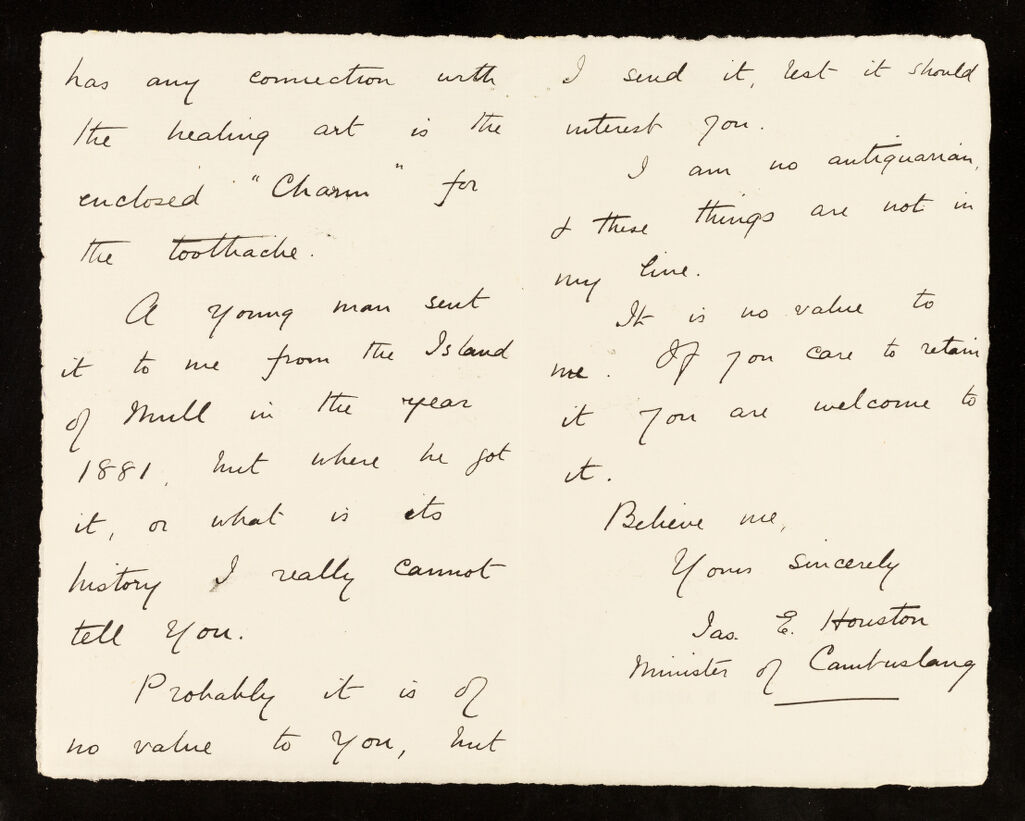 has any connection with
the healing art is the
enclosed "Charm" for
the toothache.
A young man sent
it to me from the Island
of Mull in the year
1881, but where he got
it, or what is its
history I really cannot
tell you.
Probably it is of
no value to you, but
I send it, lest it should
interest you.
I am no antiquarian,
& these things are not in
my line.
It is no value to
me. If you care to retain
it you are welcome to
it.
Believe me,
Yours sincerely
Jas. E. Houston
Minister of Cambuslang